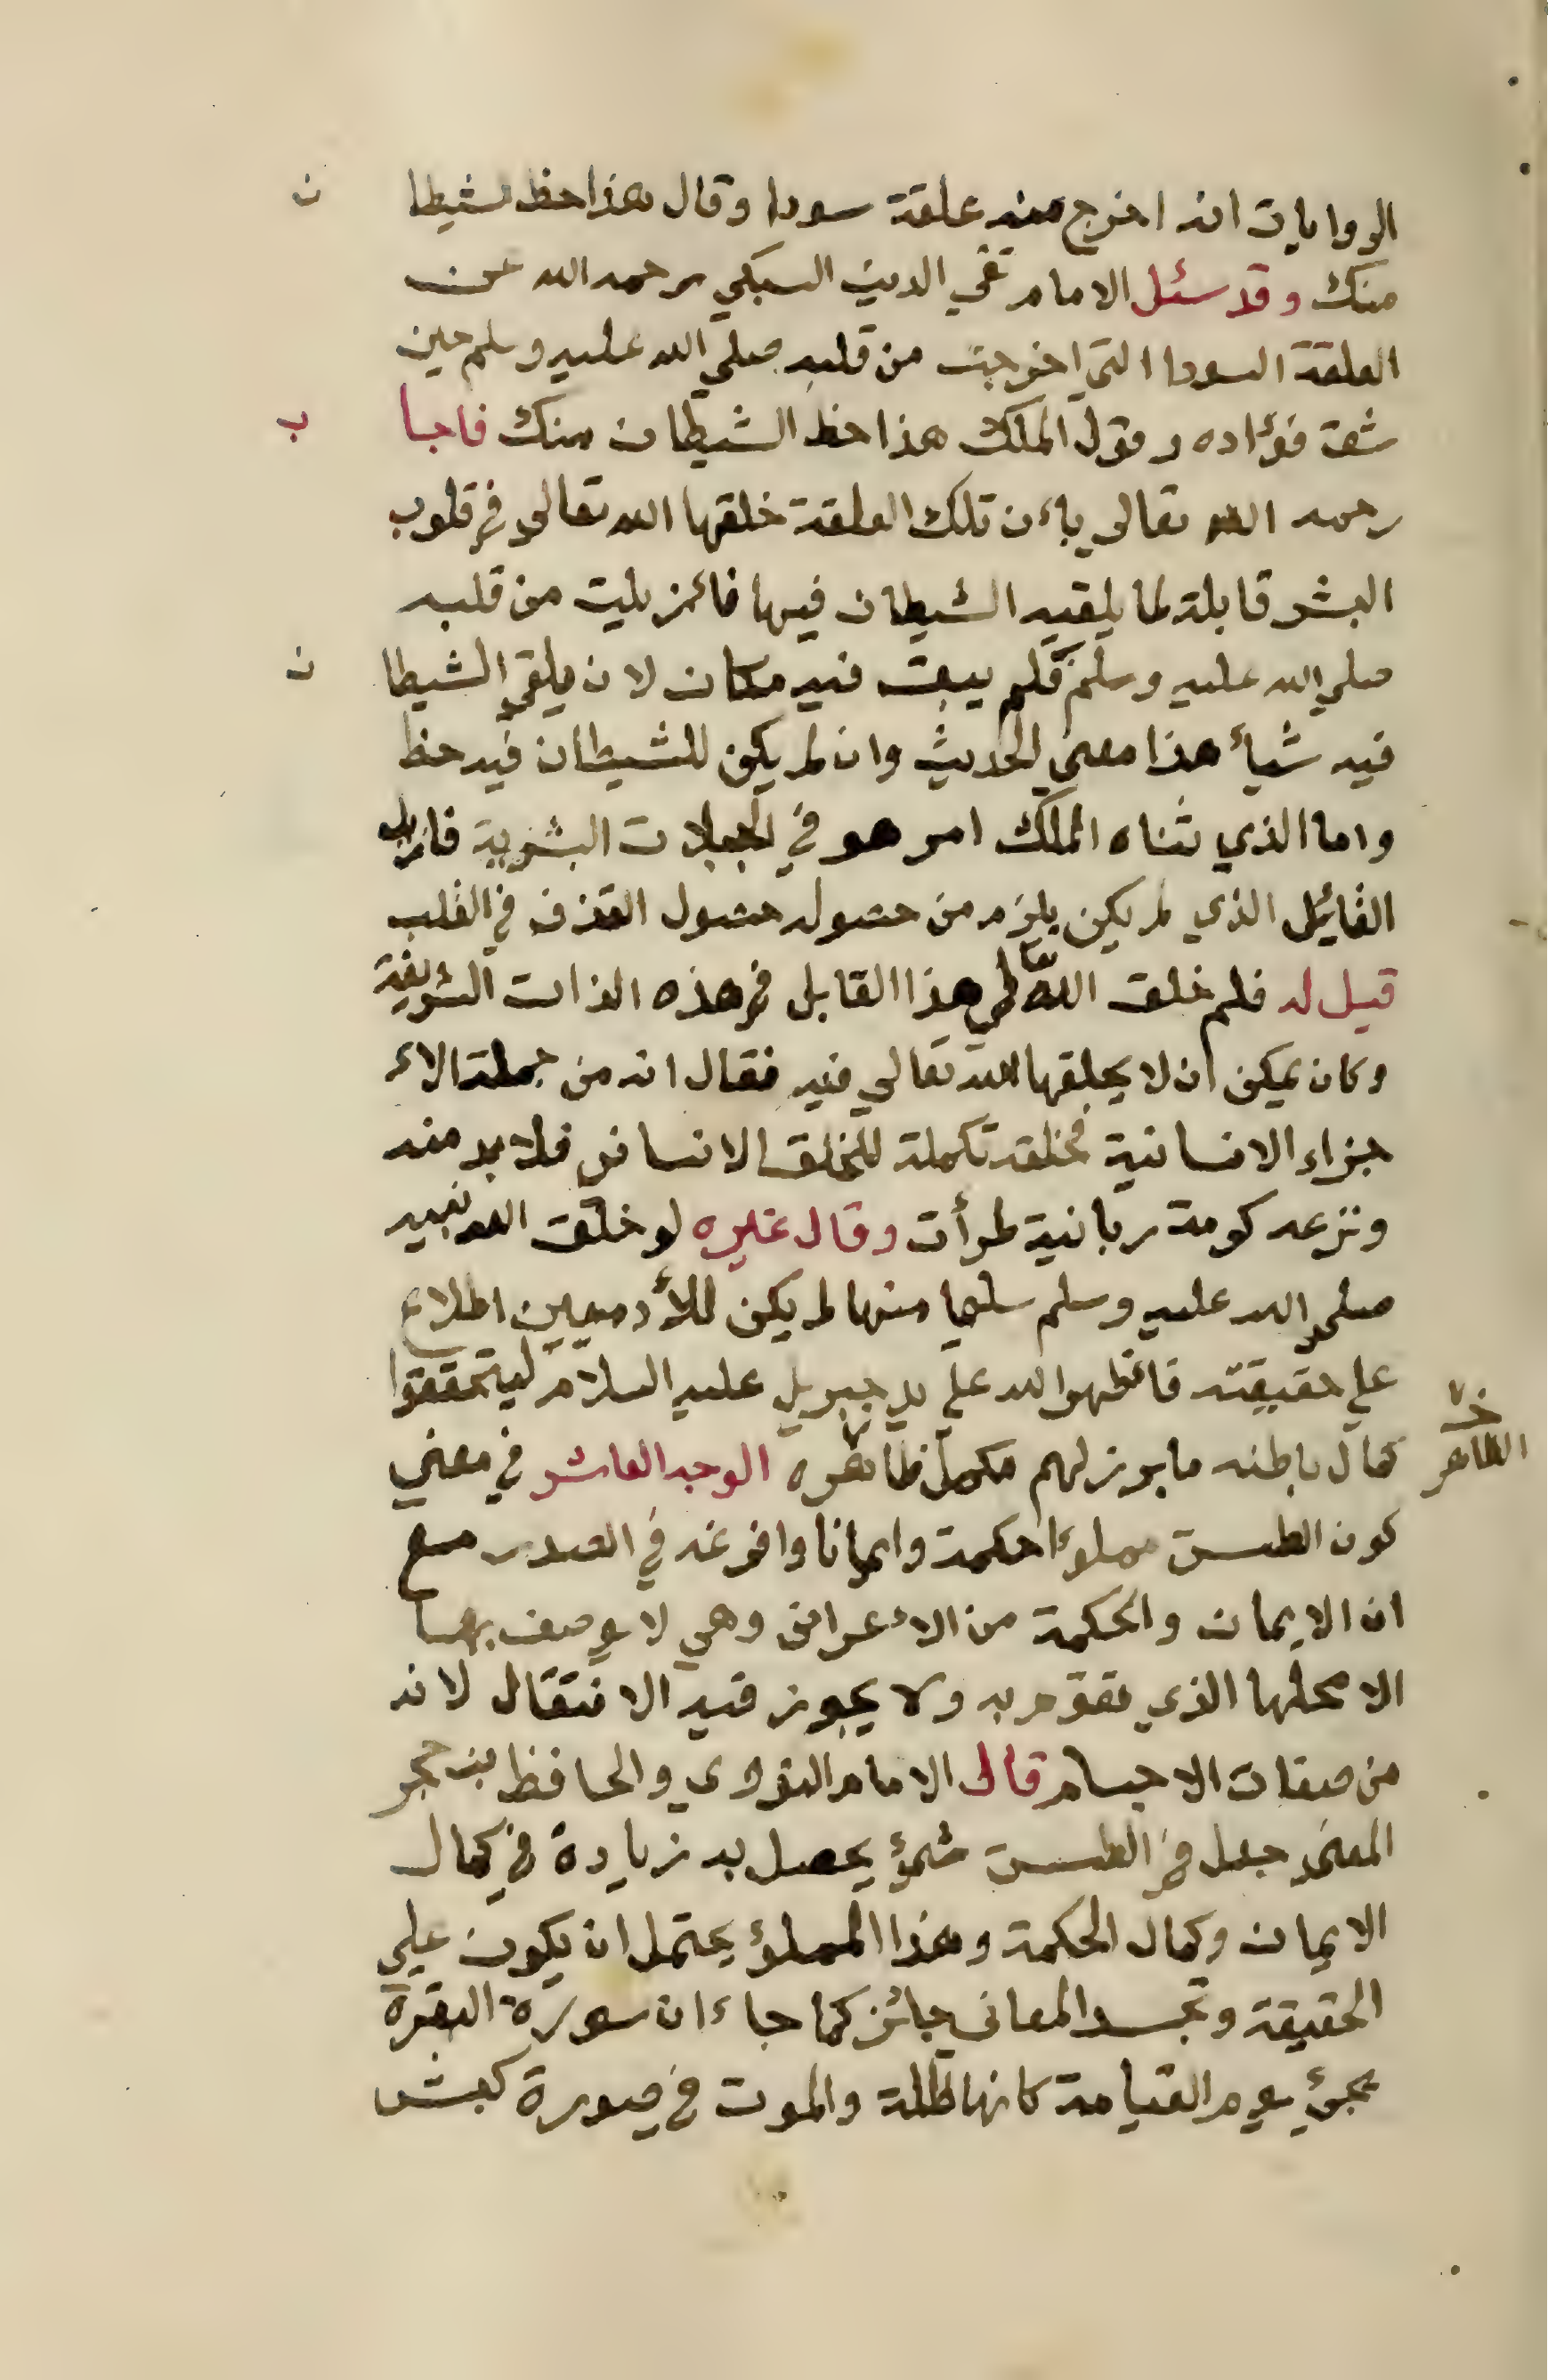 الروايات انه اخرج منه علقة سودا وقال هذا حظ لشيطا ن
منك وقد سئل الامام تقي الدين السبكي رحمه الله عن
العلقة السودا التي اخرجت من قلبه صلي الله عليه وسلم حين
شق فؤاده وقول الملك هذا حظ الشيطان منك فاجا ب
رحمه الله تعالى باءن تلك العلقة خلقها الله تعالى في قلوب
البشر قابلة لما يلقيه الشيطان فيها فائزيلت من قلبه
صلي الله عليه وسلم فلم يبق فيه مكان لان يلقي الشيطا ن
فيه شيأ هذا معني الحديث وان لم يكن للشيطان فيه حظ
واما الذي نفاه الملك امر هو في الجبلات البشرية فازيل
القايل الذي لم يكن يلزم من حصوله حصول القذف في القلب
قيل له فلم خلق الله تعالي هذا القابل في هذه الذات الشريفة
وكان يمكن ان لا يخلقها الله تعالي فيه فقال انه من جملة الاء
جزاء الانسانية فخلقه تكملة للخلق الانساني فلا بد منه
ونزعه كرمة ربانية طرأت وقال غيره لو خلق الله نبيه
صلى الله عليه وسلم سليما منها لم يكن للأدميين اطلاع
علي حقيقته فائظهره الله علي يد جبريل عليه السلام ليتحققوا
كمال باطنه مابرز لهم مكمل ظاهره الوجه العاشر في معني
خ الظاهر
كون الطست مملوءا حكمة وايمانا وافرغه في الصدر مع
ان الايمان والحكمة من الاءعراض وهي لا يوصف بها
الا محلها الذي تقوم به ولا يجوز فيه الانتقال لانه
من صفات الاجسام قال الامام النووي والحافظ بن حجر
المعنى جعل في الطست شيؤ يحصل به زيادة في كمال
الايمان وكمال الحكمة وهذا المملؤ يحتمل ان يكون علي
الحقيقة وتجسد المعاني جائز كما جاء ان سورة البقرة
يجيؤ يوم القيامة كانها ظلة والموت في صورة كبش